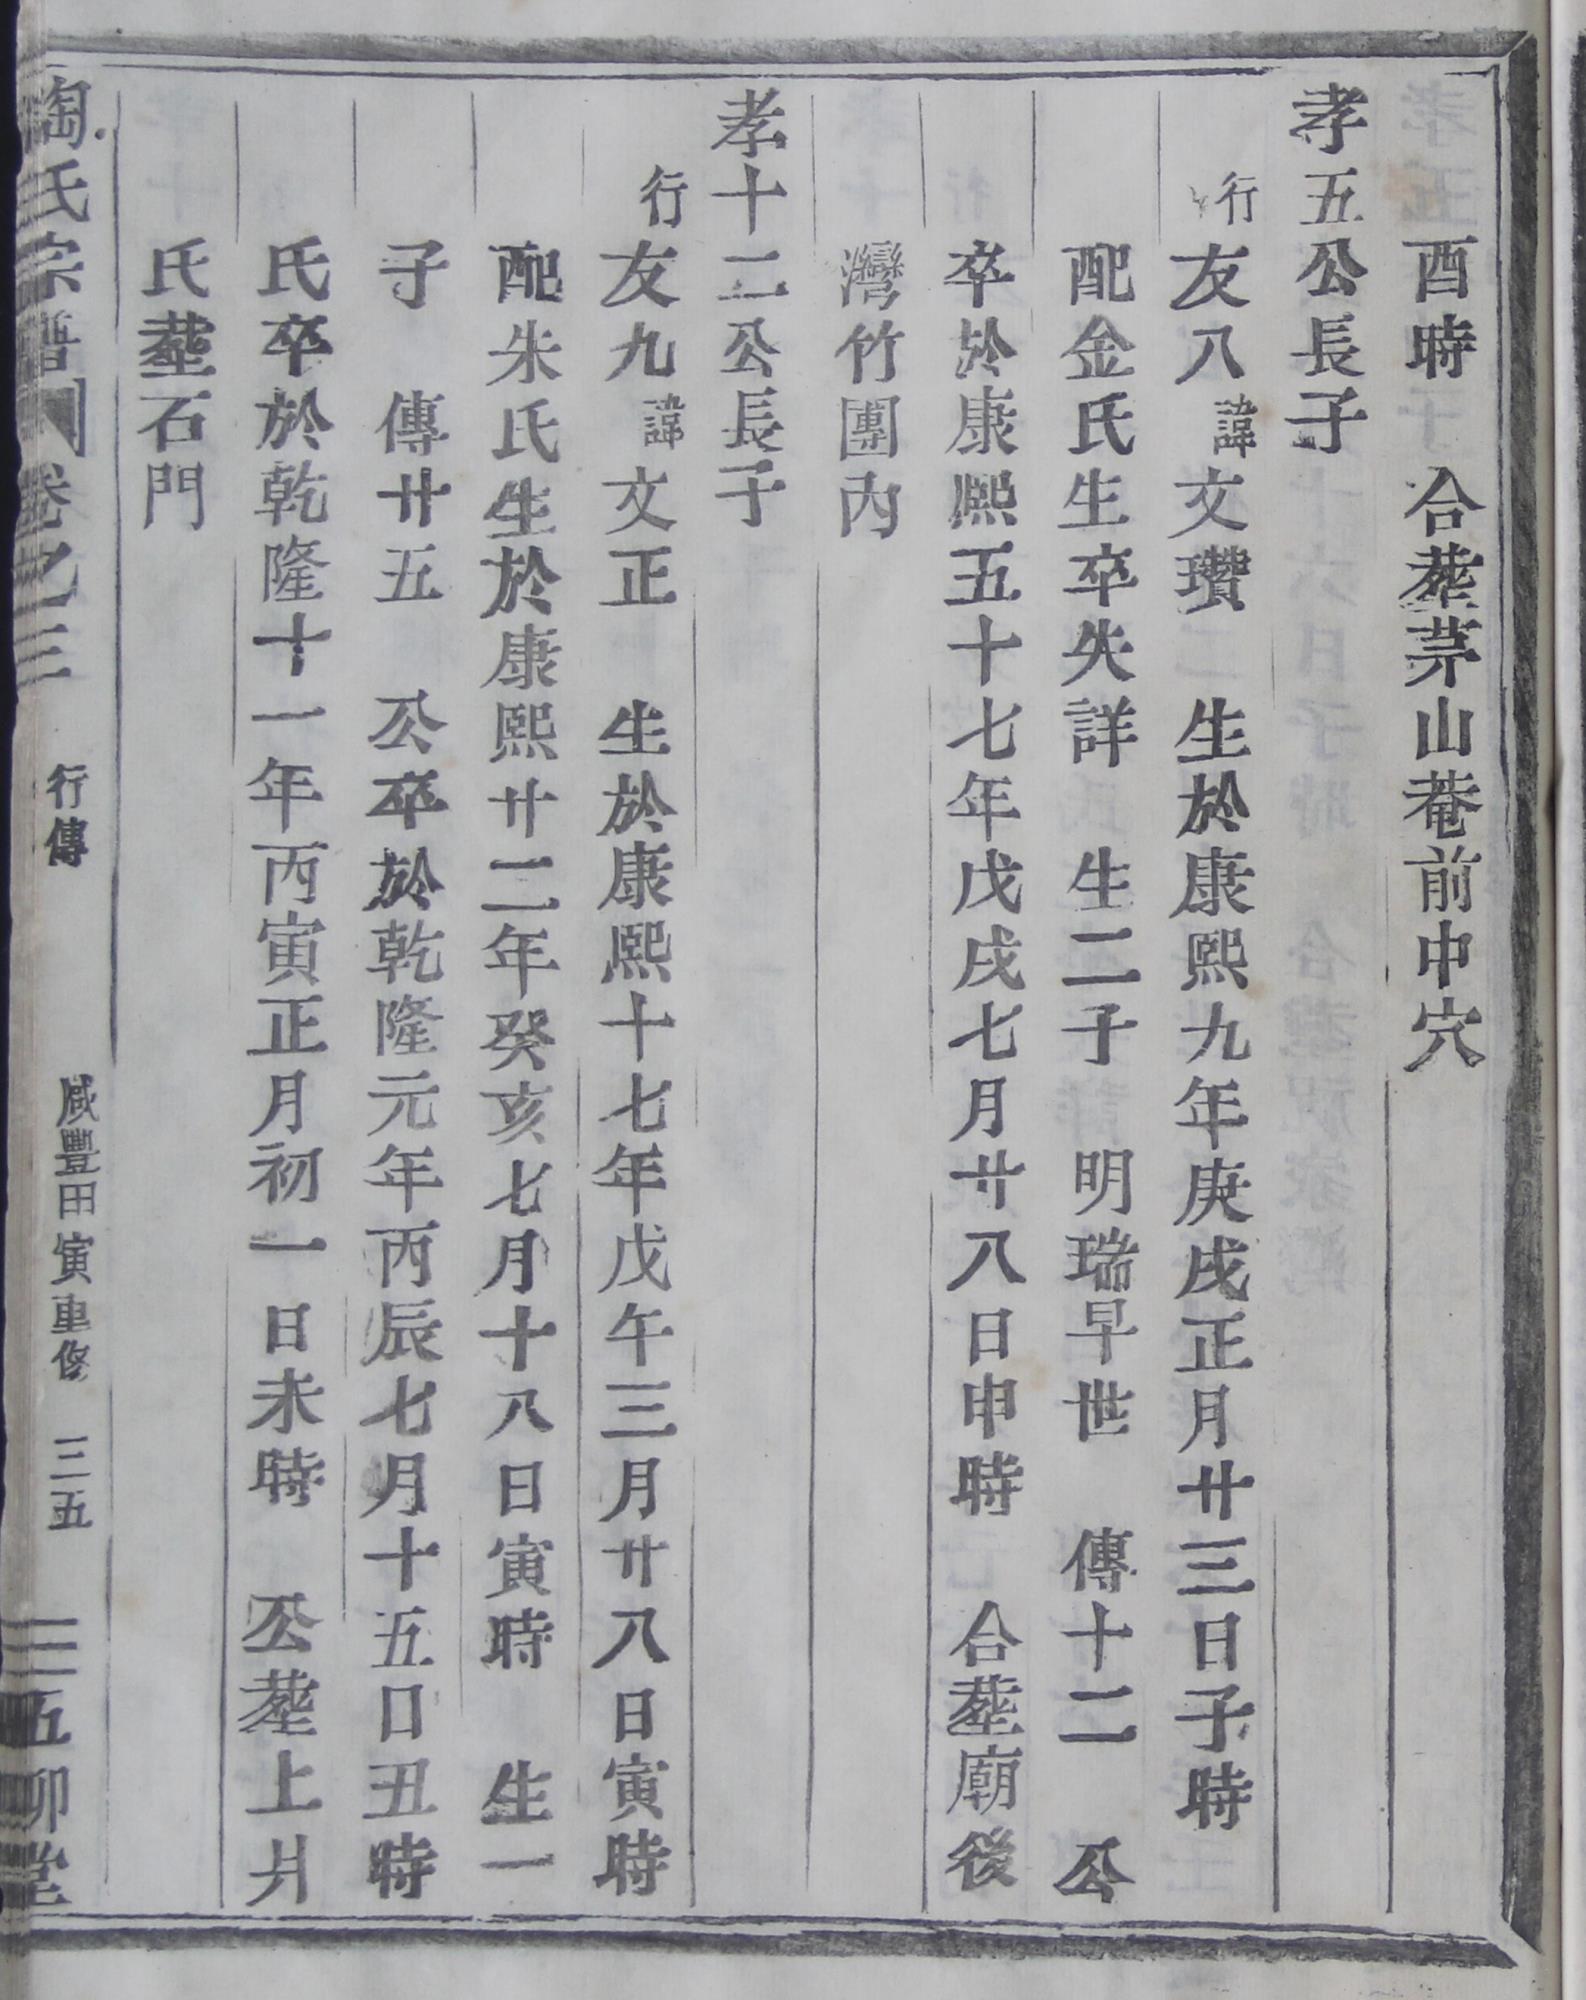 酉時　合塟茅山菴前中穴
孝五公長子
行友八諱文瓚　生於康熙九年庚戌正月廿三日子時
配金氏生卒失詳　生二子　明瑞早世　傳十二　公
卒於康熙五十七年戊戌七月廿八日申時　合塟廟後
灣竹團內
孝十二公長子
行友九諱文正　生於康熙十七年戊午三月廿八日寅時
配朱氏生於康熙廿二年癸亥七月十八日寅時　生一
子　傳廿五　公卒於乾隆元年丙辰七月十五日丑時
氏卒於乾隆十一年丙寅正月初一日未時　公塟上爿
氏塟石門
陶氏宗譜　卷之三　行傳　咸豐甲寅重修　三五　五柳堂